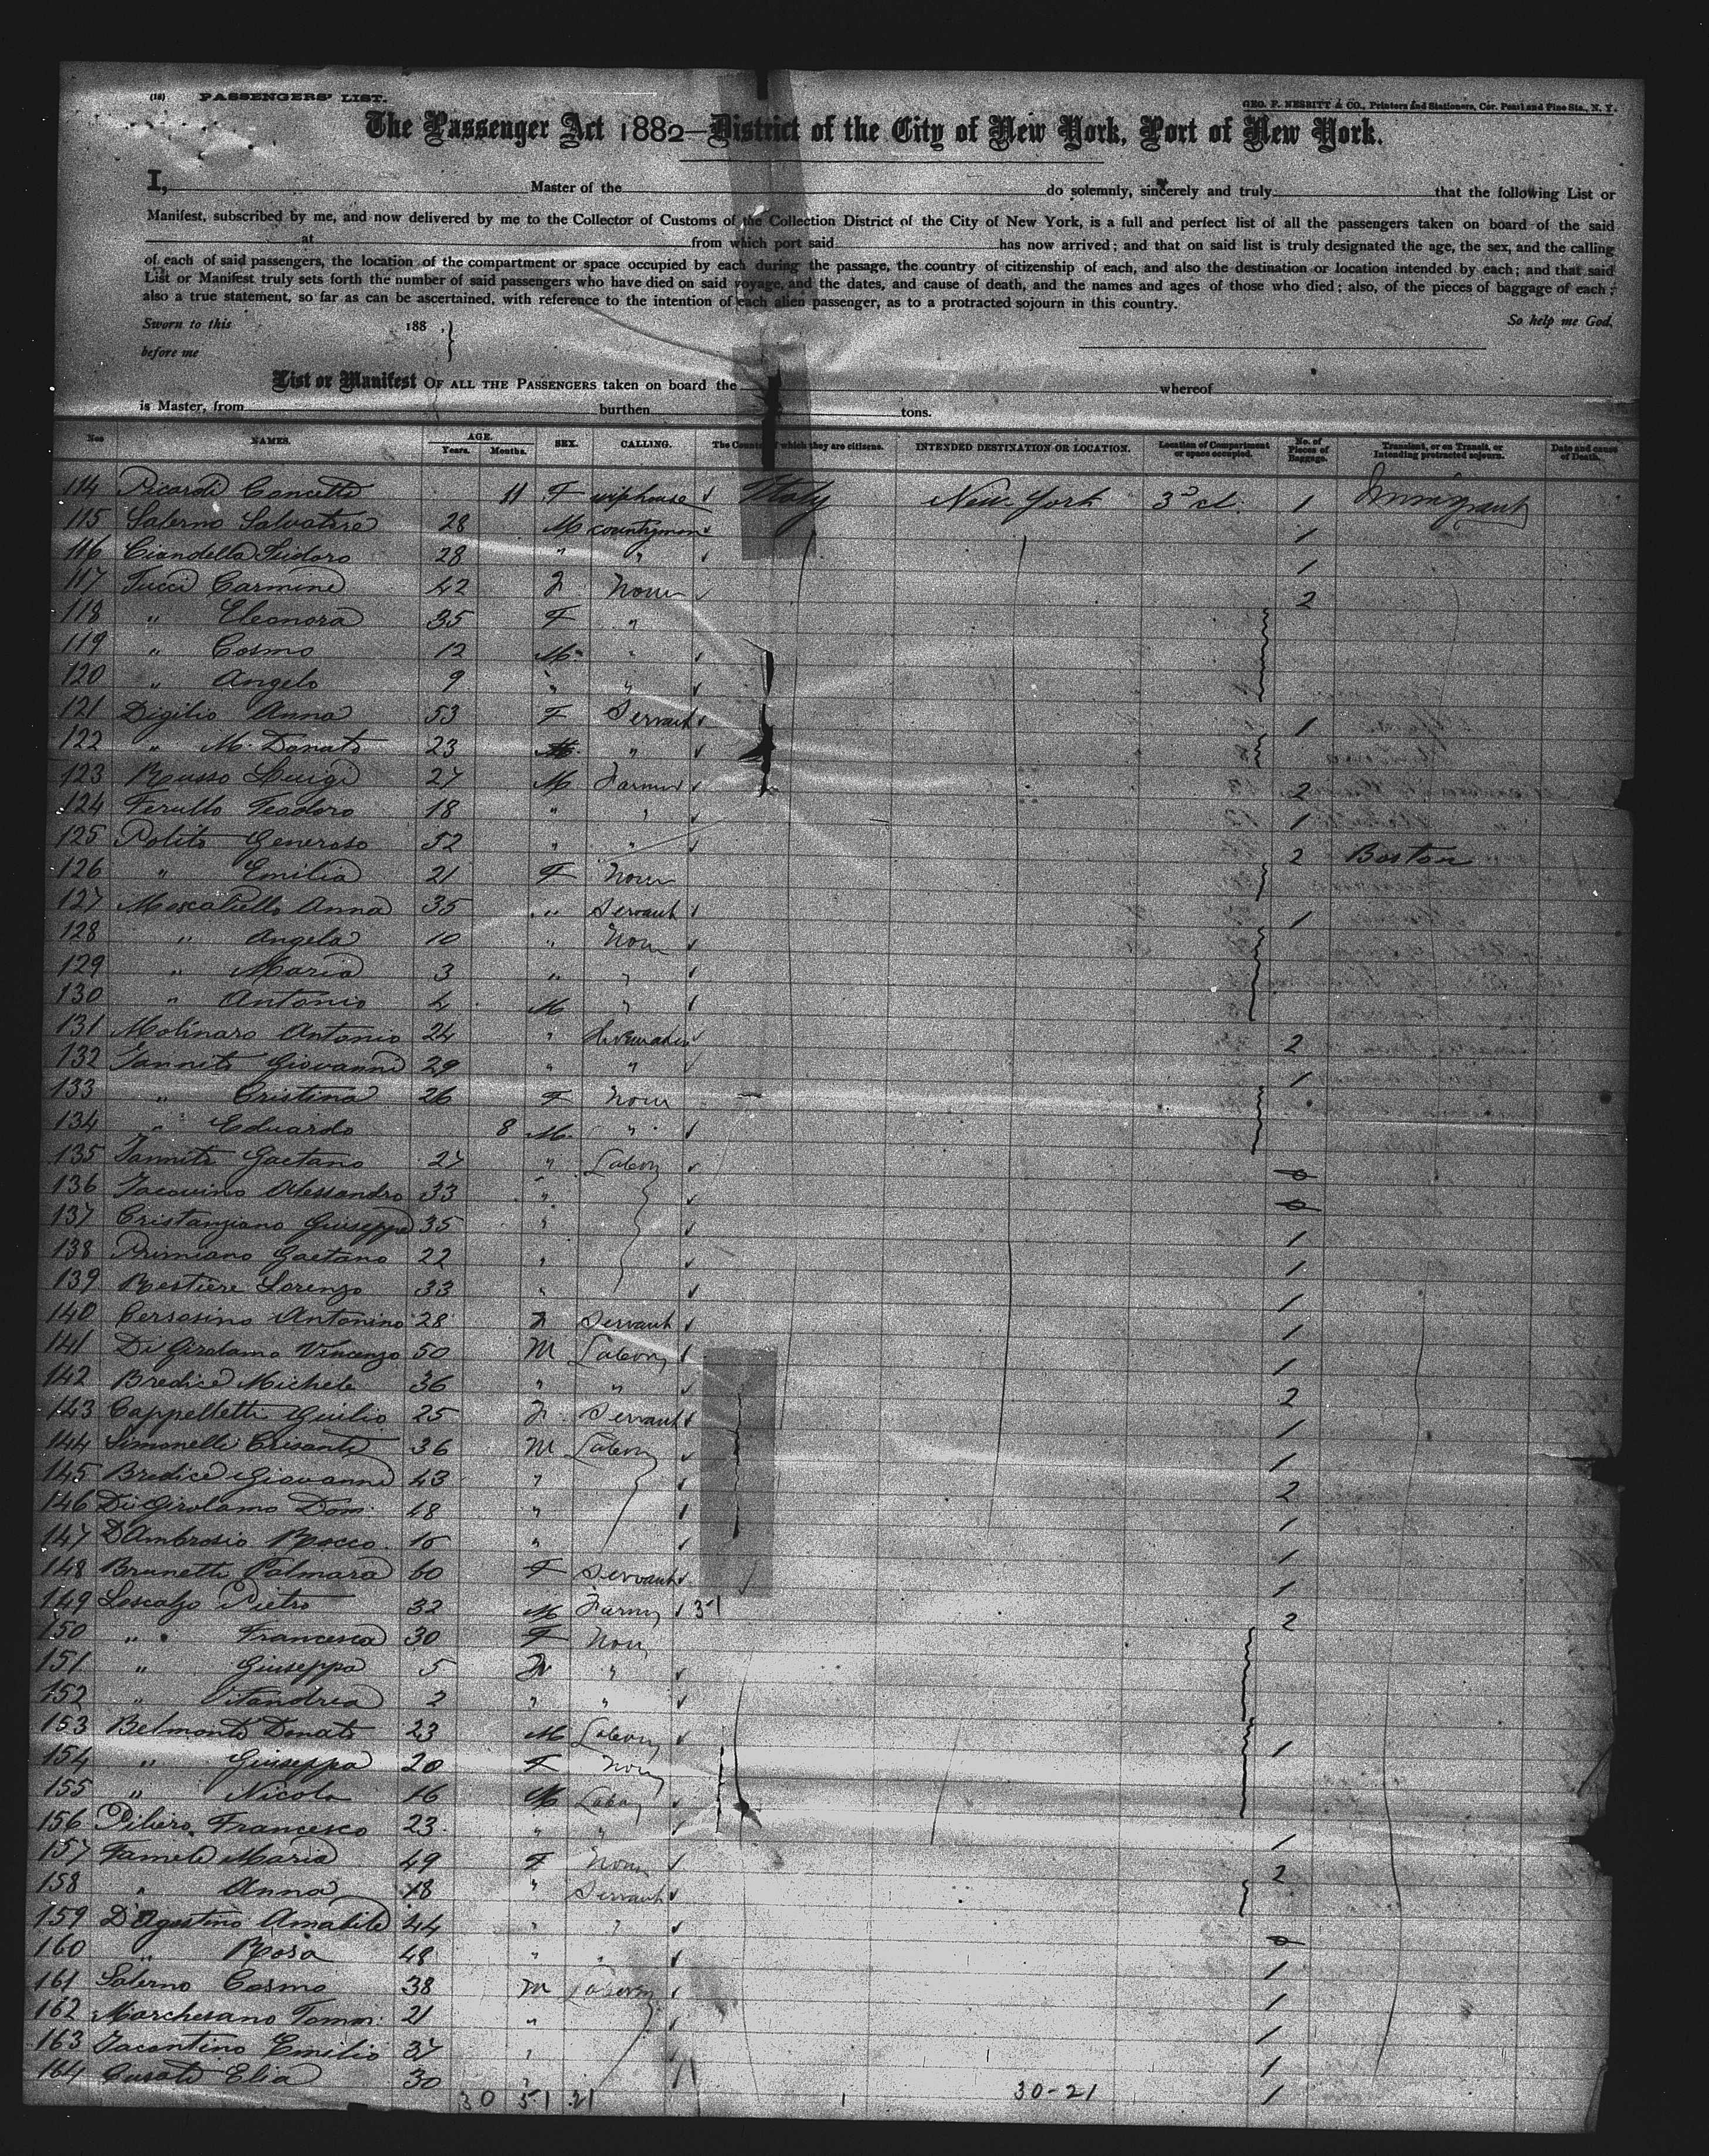 (18) PASSENGERS' LIST.
GEO. F. NESBITT & CO., Printers and Stationers, Cor. Pearl and Pine Sts., N. Y.
The Passenger Act 1882—District of the City of New York, Port of New York.
I, Master of the do solemnly, sincerely and truly that the following List or
Manifest, subscribed by me, and now delivered by me to the Collector of Customs of the Collection District of the City of New York, is a full and perfect list of all the passengers taken on board of the said
at from which port said has now arrived; and that on said list is truly designated the age, the sex, and the calling
of each of said passengers, the location of the compartment or space occupied by each during the passage, the country of citizenship of each, and also the destination or location intended by each; and that said
List or Manifest truly sets forth the number of said passengers who have died on said voyage, and the dates, and cause of death, and the names and ages of those who died; also, of the pieces of baggage of each;
also a true statement, so far as can be ascertained, with reference to the intention of each alien passenger, as to a protracted sojourn in this country.
Sworn to this 188 . } So help me God.
before me
List or Manifest OF ALL THE PASSENGERS taken on board the whereof
is Master, from burthen tons.
Nos NAMES. AGE. Years. Months. SEX. CALLING. The Country of which they are citizens. INTENDED DESTINATION OR LOCATION. Location of Compartment or space occupied. No. of Pieces of Baggage. Transient, or on Transit, or Intending protracted sojourn. Date and cause of Death.
114 Picardi Concetta 11 F Italy New-York 3d cl. 1 Immigrant
115 Salerno Salvatore 28 M countryman 1
116 Ciandella Isidoro 28 " " 1
117 Tucci Carmine 42 None 2
118 " Eleonora 35 F "
119 " Cosmo 12 M. "
120 " Angelo 9 " "
121 Digilio Anna 53 F Servant 1
122 " M. Donato 23 "
123 Russo Luigi 27 M Farmer 2
124 Ferullo Teodoro 18 " " 1
125 Polito Generoso 52 " " 2 Boston
126 " Emilia 21 F None
127 Moscatiello Anna 35 " Servant 1
128 " Angela 10 " None
129 " Maria 3 " "
130 " Antonio 4 M "
131 Molinaro Antonio 24 " 2
132 Iannito Giovanni 29 " " 1
133 " Cristina 26 F None
134 " Eduardo 8 M. "
135 Iannito Gaetano 27 " Labor 0
136 Iacovino Alessandro 33 " 0
137 Cristanziano Giuseppe 35 " 1
138 Primiano Gaetano 22 " 1
139 Restiere Lorenzo 33 " 1
140 Cersosino Antonino 28 Servant 1
141 Di Girolamo Vincenzo 50 M Labor 1
142 Bredice Michele 36 " " 2
143 Cappelletti Giulio 25 Servant 1
144 Simonelli Crisante 36 M Labor 1
145 Bredice Giovanni 43 " 2
146 Di Girolamo Dom. 48 " 1
147 D'Ambrosio Rocco 16 " 1
148 Brunetti Palmara 60 F Servant 1
149 Loscalzo Pietro 32 M Farmer 31 2
150 " Francesca 30 F None
151 " Giuseppa 5 "
152 " 2 " "
153 Belmonte Donato 23 M Labor 1
154 " Giuseppa 20 F None
155 " Nicola 16 M Labor
156 Piliero Francesco 23 " " 1
157 Famele Maria 49 F None 2
158 " Anna 18 " Servant
159 D'Agostino Amabile 44 " " 0
160 " Rosa 48 " " 1
161 Salerno Cosmo 38 M Labor 1
162 Marchesano Tomm. 21 " 1
163 Iacontino Emilio 37 " 1
164 Cusato Elia 30 " 1
30 51 21 30-21